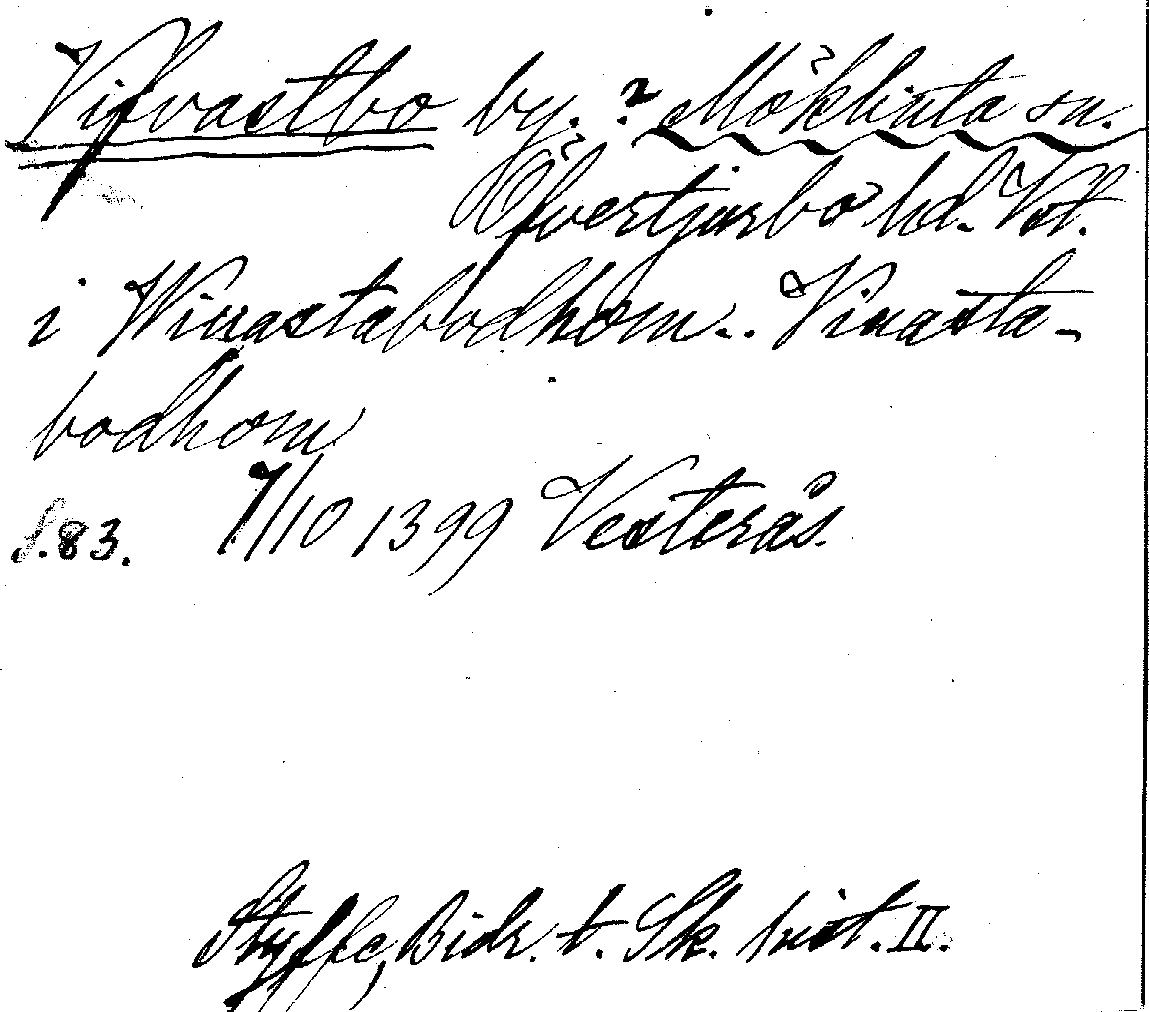 Vifvastbo by. ? Möklinta sn.
Öfvertjurbo hd. Vstl.
i Winastabodhom.. Vinasta-
bodhom
s.83. 7/10 1399 Vesterås.
Styffe, Bidr. t. Sk. hist. II.